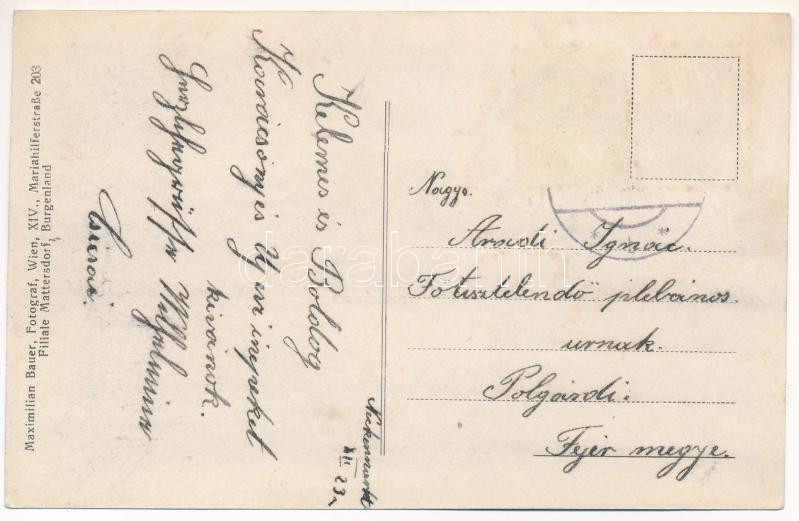 Maximilian Bauer, Fotograf, Wien, XIV., Mariahilferstraße 203
Filiale Mattersdorf, Burgenland
Kelemes és Boldog
Karácsonyi és Ujévi
kivánok.
Wilhelmina
Neckenmarkt
XII 23
Nagys.
Arnoldi Ignác.
Főtisztelendő plebános
urnak.
Polgárdi.
Fejér megye.
darabanth